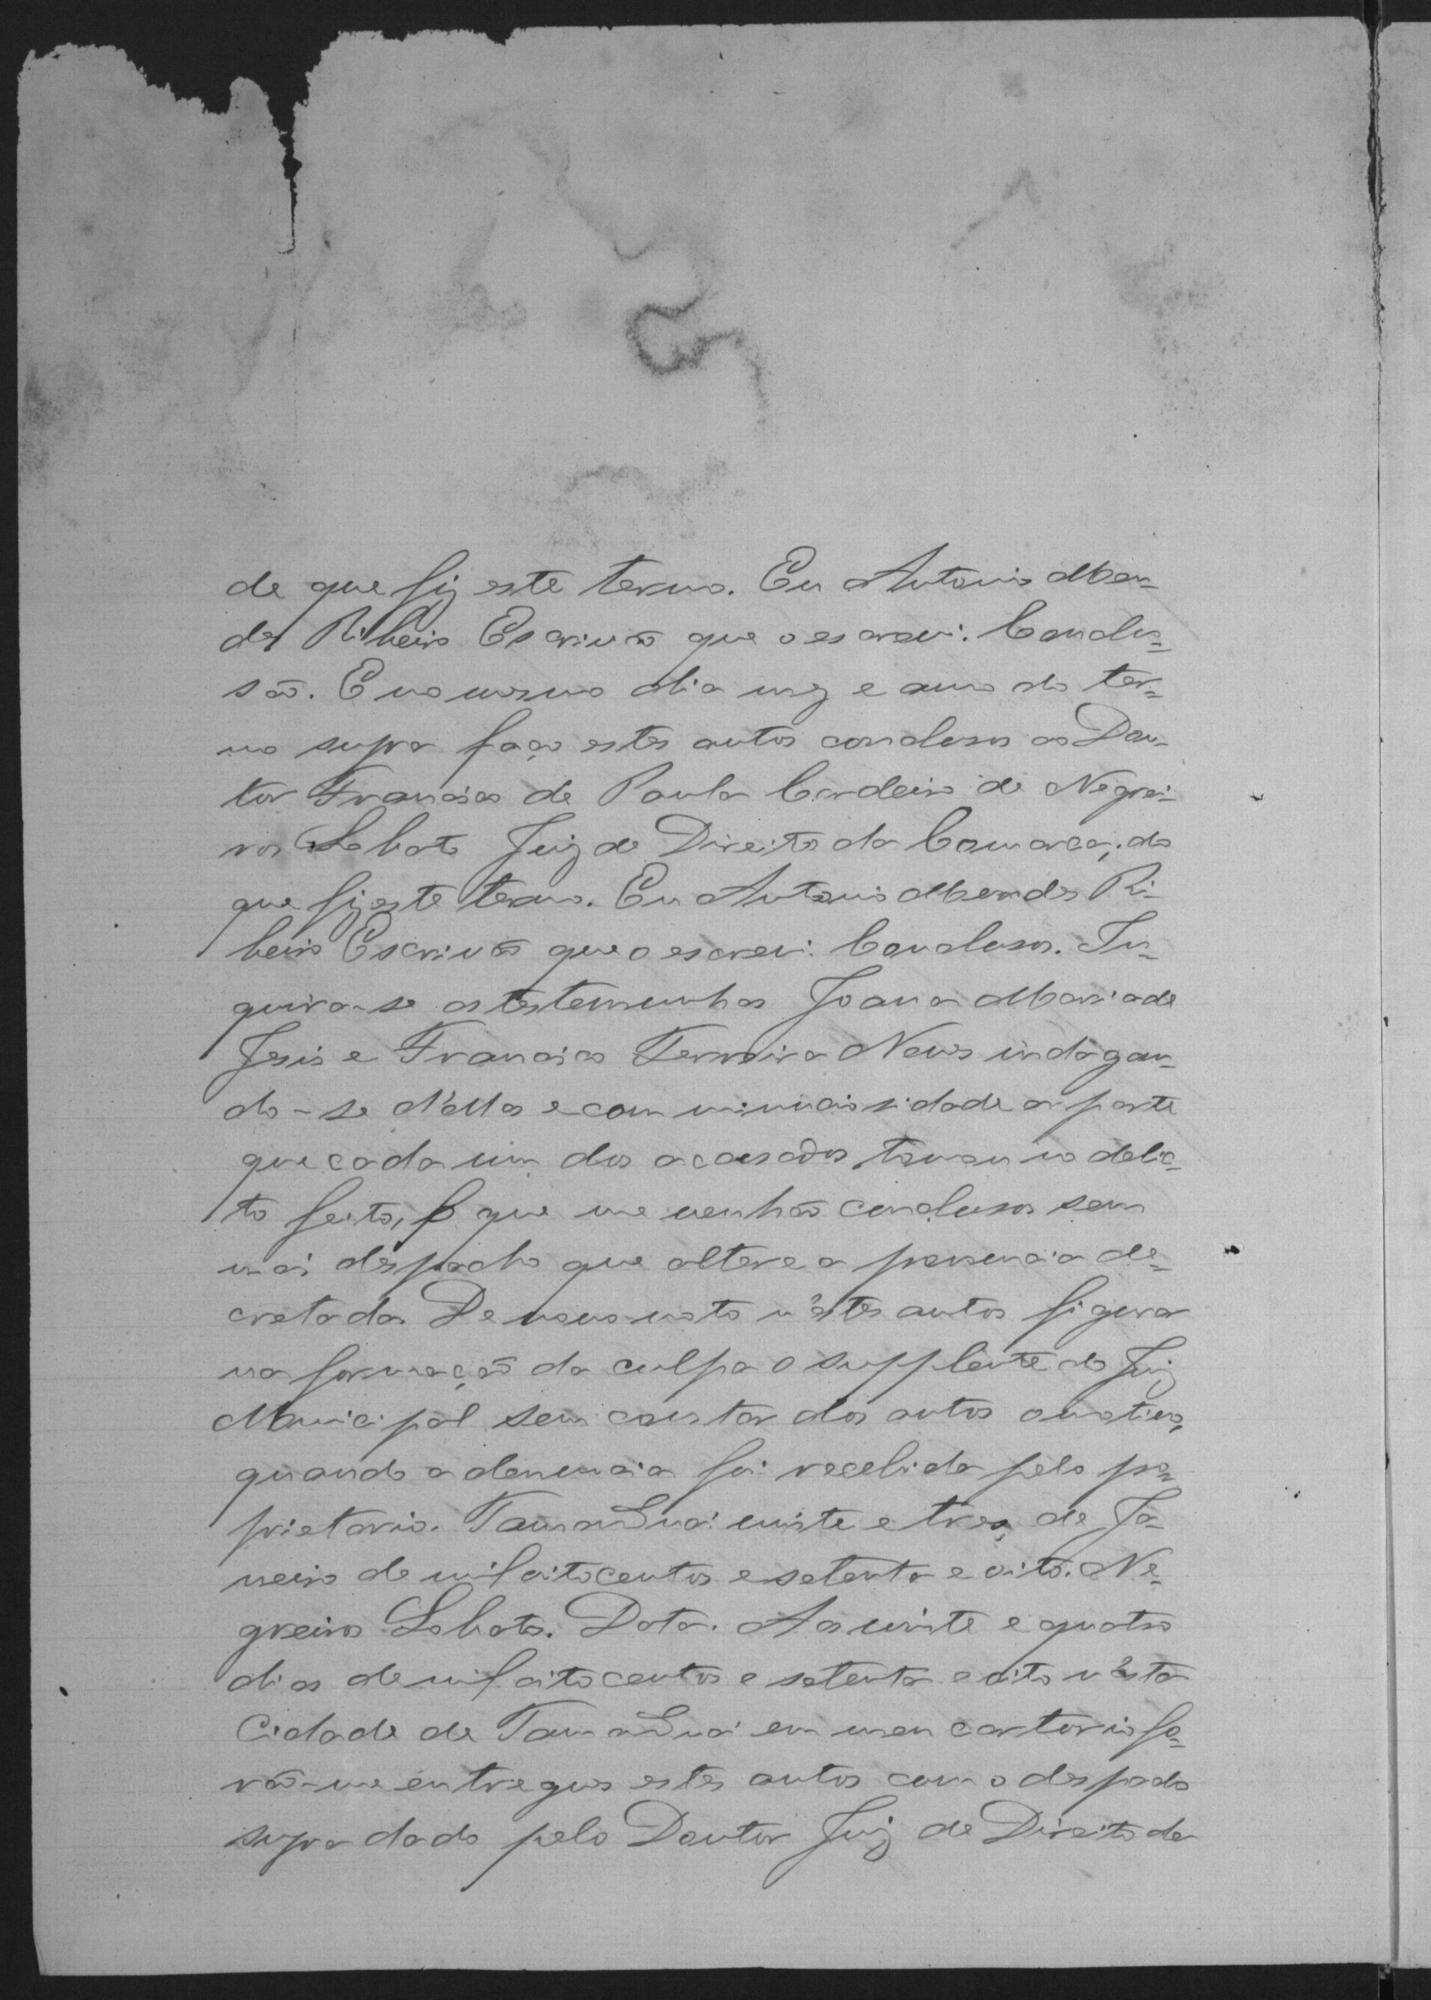 de que fiz este termo. Eu Antonio Men-
des Ribeiro Escrivão que o escrevi. Conclu-
são. E no mesmo dia mez e anno do ter-
mo supra faço estes autos conclusos ao Dou-
tor Francisco de Paula Cordeiro de Negrei-
ros Lobato Juiz de Direito da Comarca; do
que fiz este termo. Eu Antonio Mendes Ri-
beiro Escrivão que o escrevi. Conclusos. In-
quira-se as testemunhas Joanna Maria de
Jesus e Francisco Ferreira Neves indagan-
do-se d'ellas e com minuciosidade a parte
que cada um dos accusados tomou no delic-
to feito, que me venhão conclusos sem
mais despacho que altere a pronuncia de-
cretada. De novo noto n'estes autos figurar
na formação da culpa o supplente do Juiz
Municipal sem constar dos autos o motivo,
quando a denuncia foi recebida pelo pro-
prietario. Tamanduá vinte e tres de Ja-
neiro de mil oitocentos e setenta e oito. Ne-
greiros Lobato. Data. Aos vinte e quatro
dias de mil oitocentos e setenta e oito n'esta
Cidade de Tamanduá em meu cartorio fo-
rão-me entregues estes autos com o despacho
supra dado pelo Doutor Juiz de Direito da